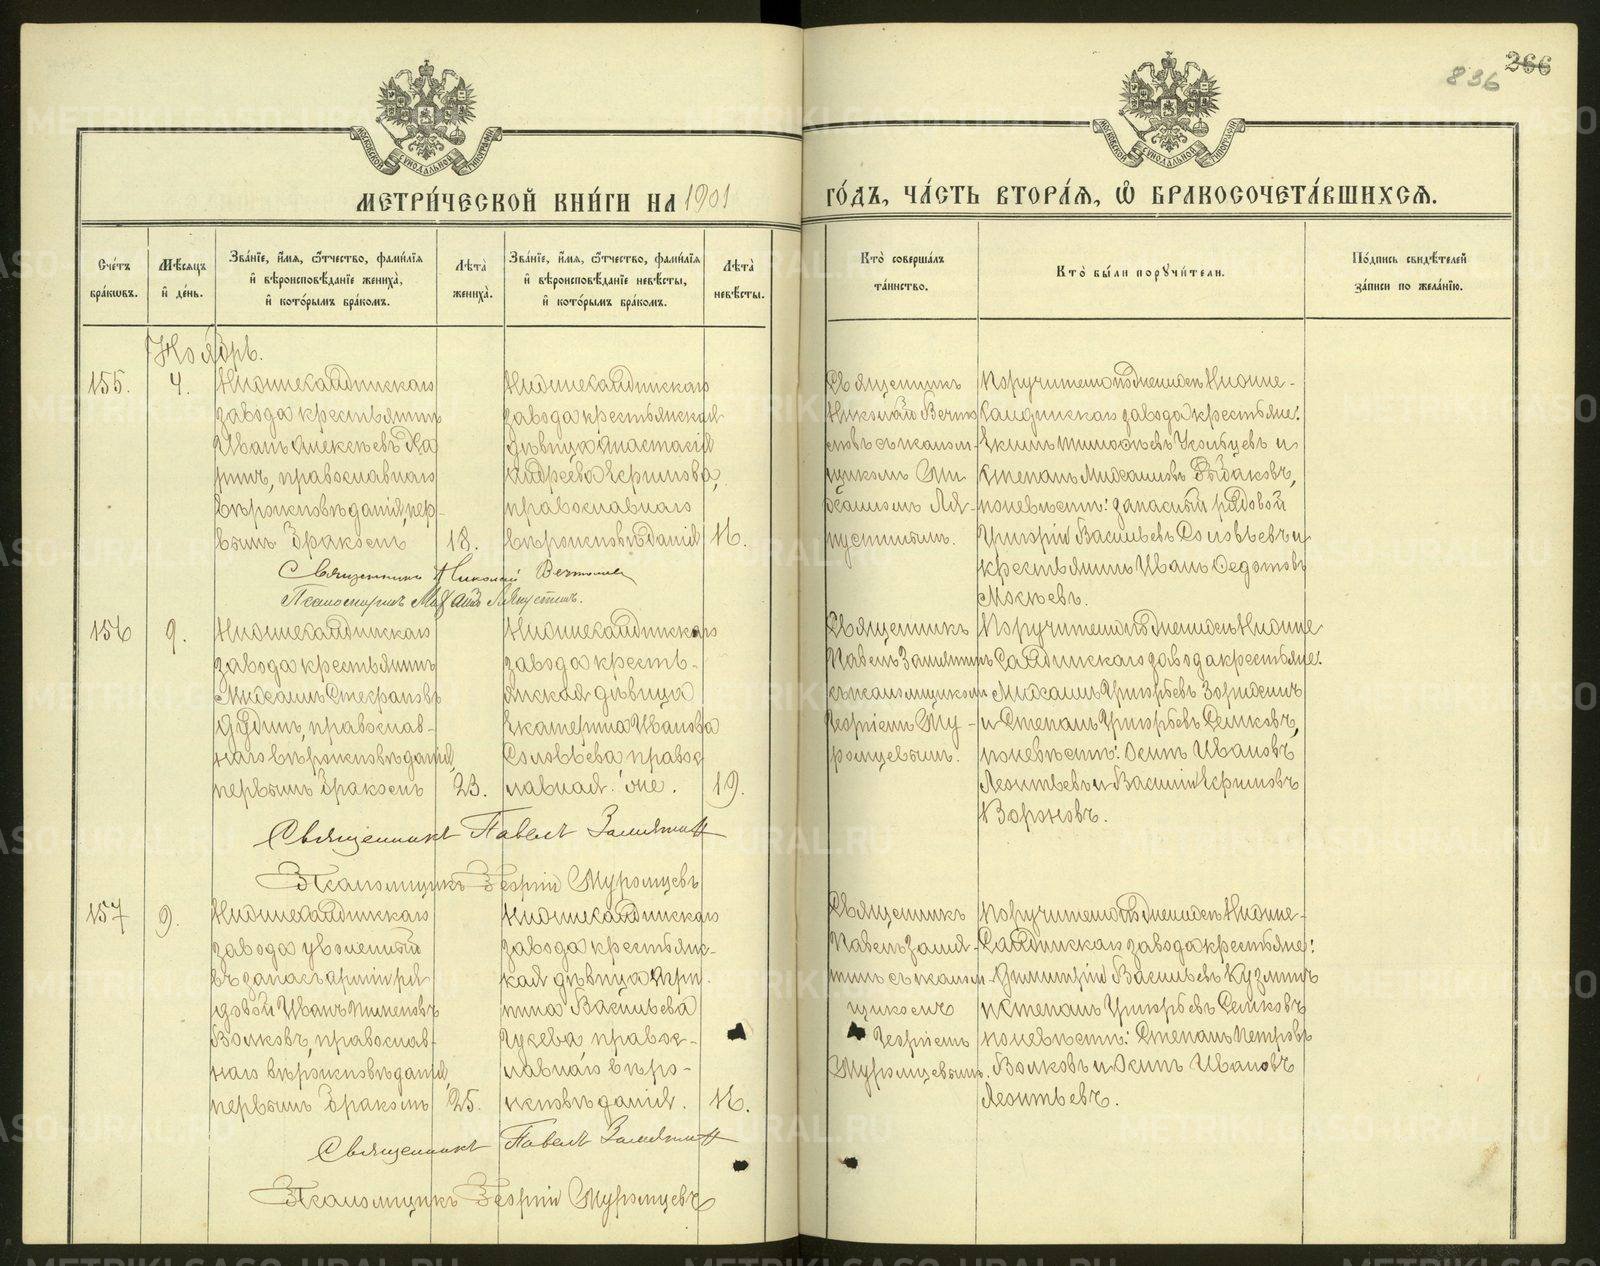 266
836
МЕТРИ́ЧЕСКОЙ КНИ́ГИ НА 1901
ГО́ДЪ, ЧА́СТЬ ВТОРА́Ѧ, Ѽ БРАКОСОЧЕТА́ВШИХСѦ.
Сче́тъ бра́кѡвъ.
Мѣ́сѧцъ и҆ де́нь.
Зва́нїе, и҆́мѧ, ѻ҆́тчество, фами́лїѧ
и҆ вѣроисповѣ́данїе жениха̀,
и҆ кото́рымъ бра́комъ.
Лѣта̀ жениха̀.
Зва́нїе, и҆́мѧ, ѻ҆́тчество, фами́лїѧ
и҆ вѣроисповѣ́данїе невѣ́сты,
и҆ кото́рымъ бра́комъ.
Лѣта̀ невѣ́сты.
Кто̀ соверша́лъ
та́инство.
Кто̀ бы́ли порꙋчи́тели.
По́дпись свидѣ́телей
за́писи по жела́нїю.
Ноябрь.
155.
4.
Нижнесалдинскаго
завода крестьянинъ
Иванъ Алексѣевъ Ка
ринъ, православнаго
вѣроисповѣданія, пер-
вымъ бракомъ
18.
Нижнесалдинскаго
завода крестьянская
дѣвица Анастасія
Андреева
православнаго
вѣроисповѣданія
16.
Священникъ
Николай
съ псалом-
щикомъ Ми
хаиломъ Ля-
пустинымъ.
Поручителями подписались Нижне-
Салдинскаго завода крестьяне:
Екимъ Тимофѣевъ и
Степанъ Михаиловъ
по невѣстѣ: запасный рядовой
Григорій Васильевъ Соловьевъ и
крестьянинъ Иванъ Федотовъ
Мокѣевъ.
Священникъ Николай
Псаломщикъ Михаилъ Ляпустинъ.
156
9.
Нижнесалдинскаго
завода крестьянинъ
Михаилъ Стефановъ
Дудинъ, православ-
наго вѣроисповѣданія,
первымъ бракомъ
23.
Нижнесалдинскаго
завода кресть-
янская дѣвица
Екатерина Иванова
Соловьева правос
лавная
19.
Священникъ
Павелъ Замятинъ
съ псаломщикомъ
Георгіемъ Му-
ромцевымъ.
Поручителями подписались Нижне
Салдинскаго завода крестьяне:
Михаилъ Григорьевъ Зорихинъ
и Степанъ Григорьевъ Сенковъ,
по невѣстѣ: Осипъ Ивановъ
Леонтьевъ и Василій Ефимовъ
Вороновъ.
Священникъ Павелъ Замятинъ
Псаломщикъ Георгій Муромцевъ
157
9.
Нижнесалдинскаго
завода уволенный
въ запасъ арміи ря
довой Иванъ Пименовъ
Волковъ, православ-
наго вѣроисповѣданія,
первымъ бракомъ
25.
Нижнесалдинскаго
завода крестьянс-
кая дѣвица Ири-
пина Васильева
Гусева правос-
лавнаго вѣро-
исповѣданія.
16.
Священникъ
Павелъ Замя-
тинъ съ псалом-
щикомъ
Георгіемъ
Муромцевымъ.
Поручителями подписались Нижне-
Салдинскаго завода крестьяне:
Димитрій Васильевъ Кузминъ
и Степанъ Григорьевъ Сенковъ
по невѣстѣ: Степанъ Петровъ
Волковъ и Осипъ Ивановъ
Леонтьевъ.
Священникъ Павелъ Замятинъ
Псаломщикъ Георгій Муромцевъ